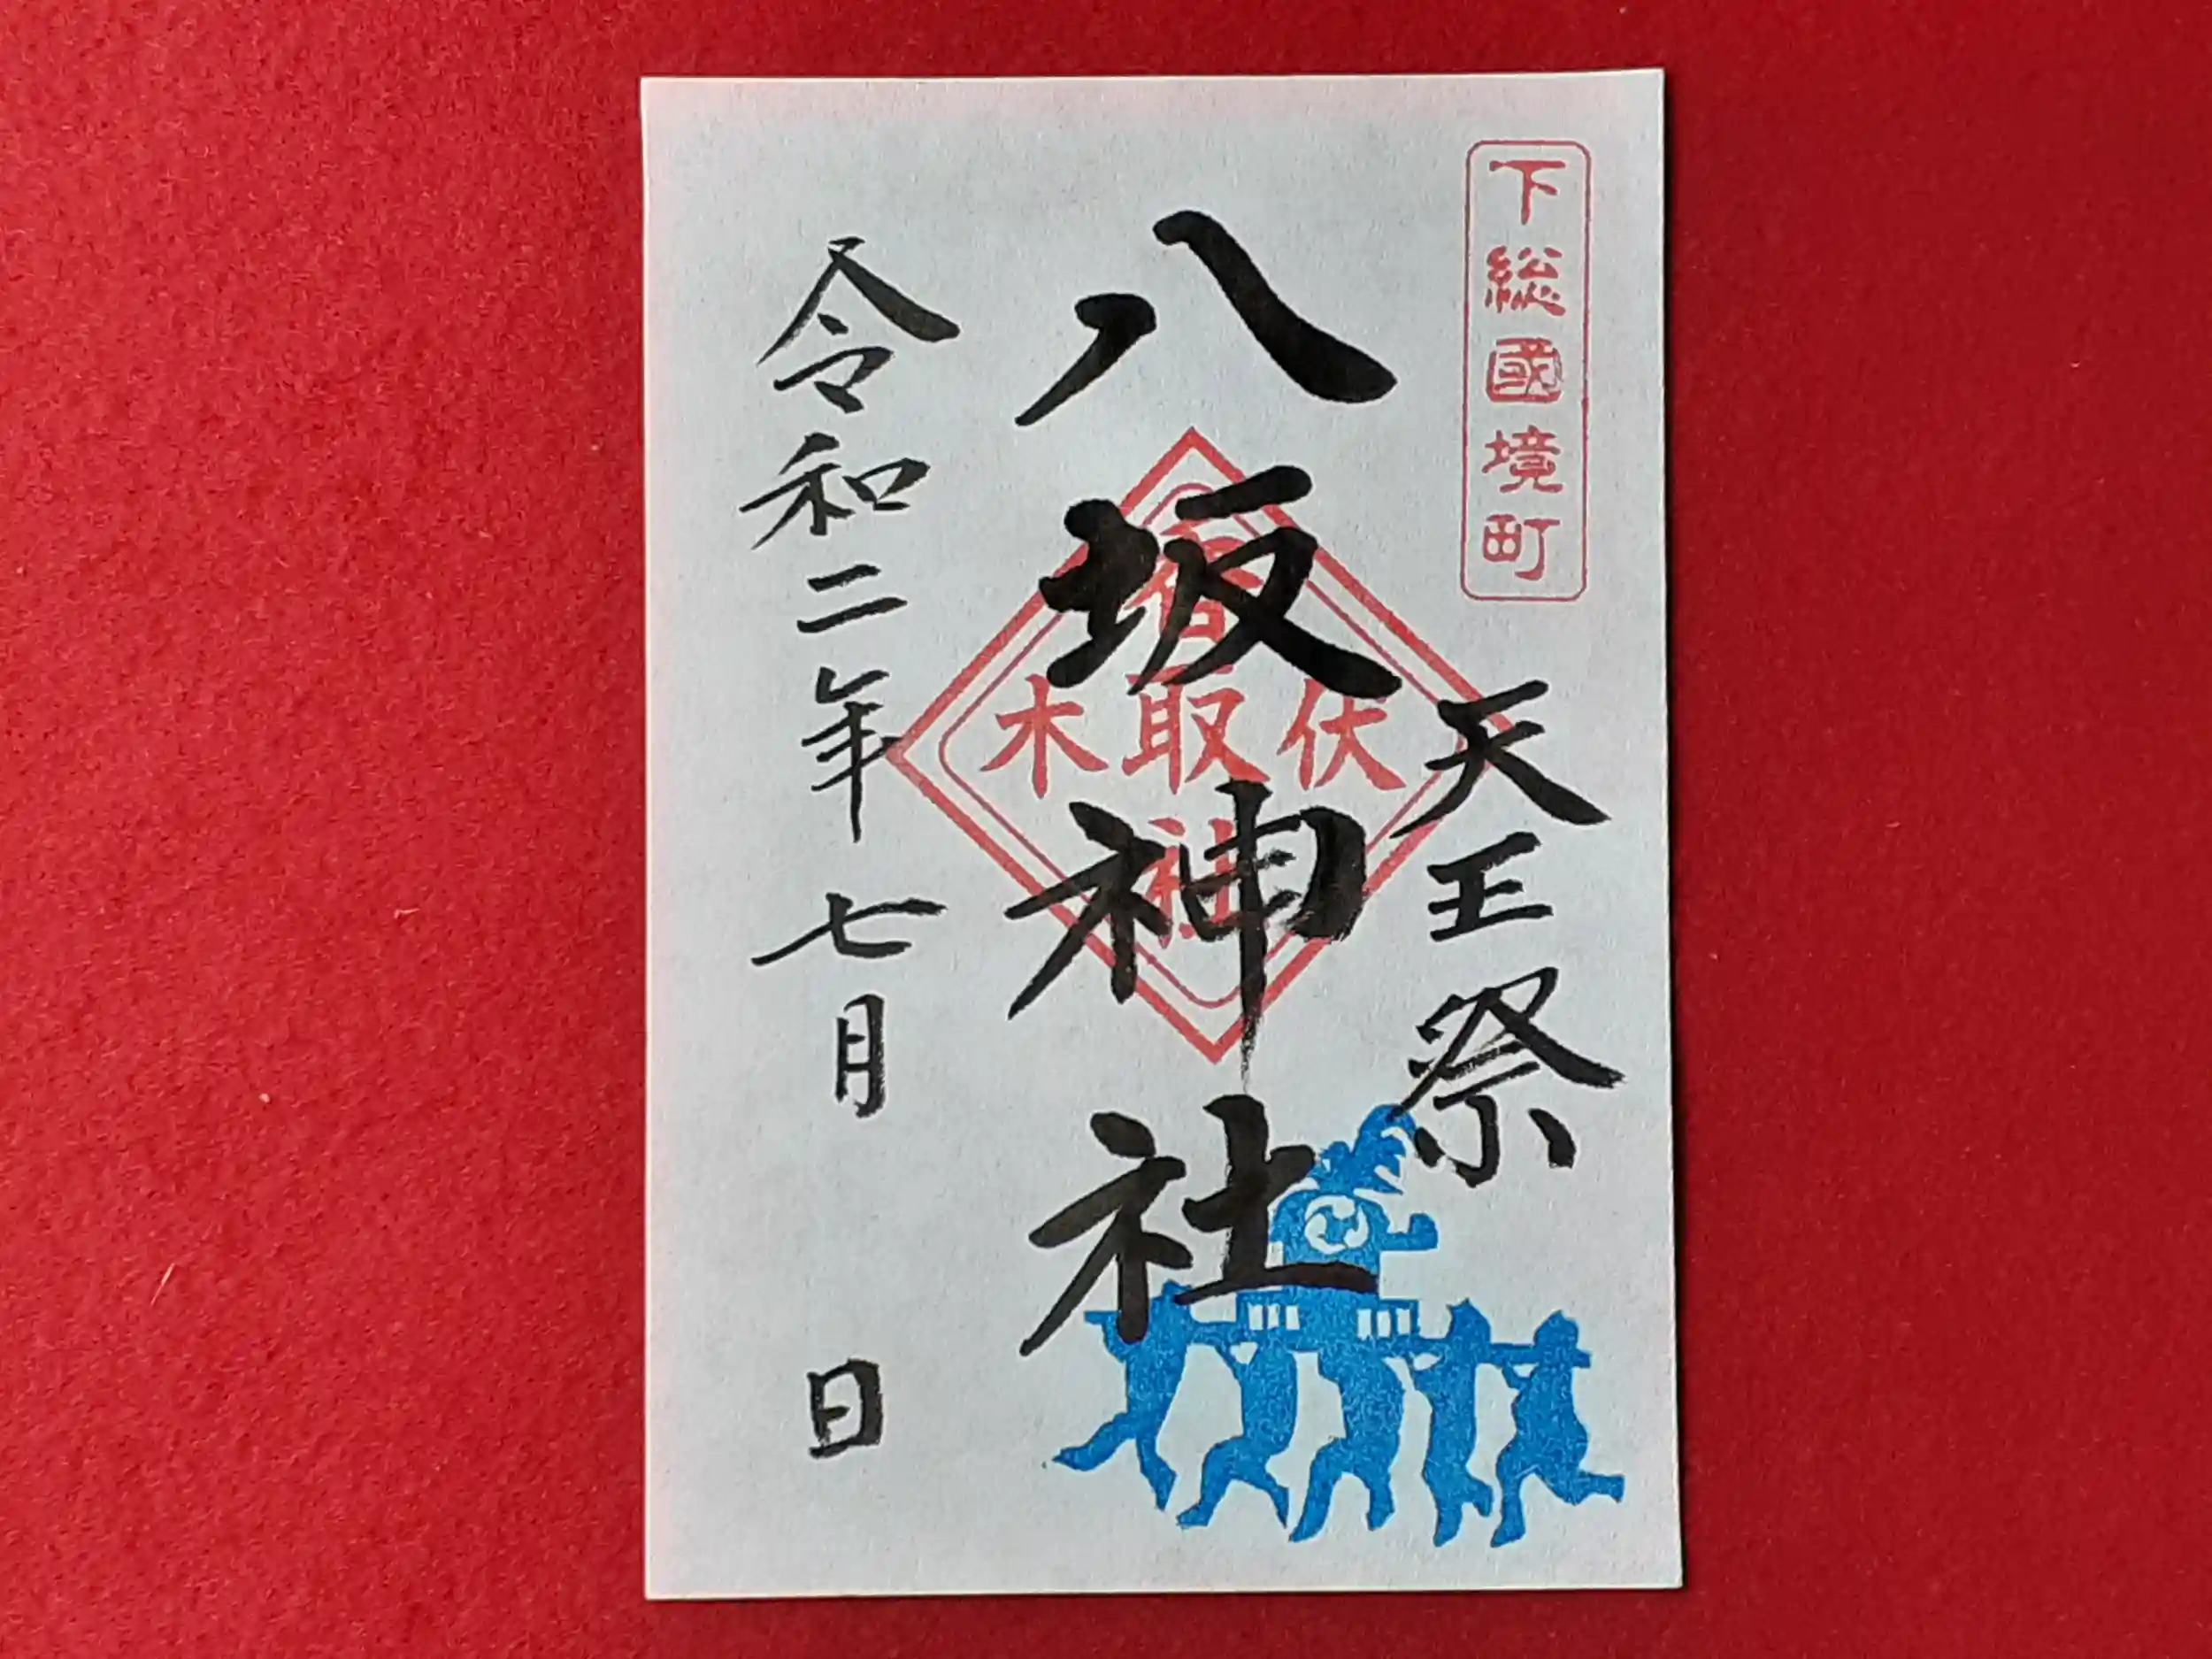 下総國境町
天王祭
八坂神社
伏
香取社
木
令和二年七月 日